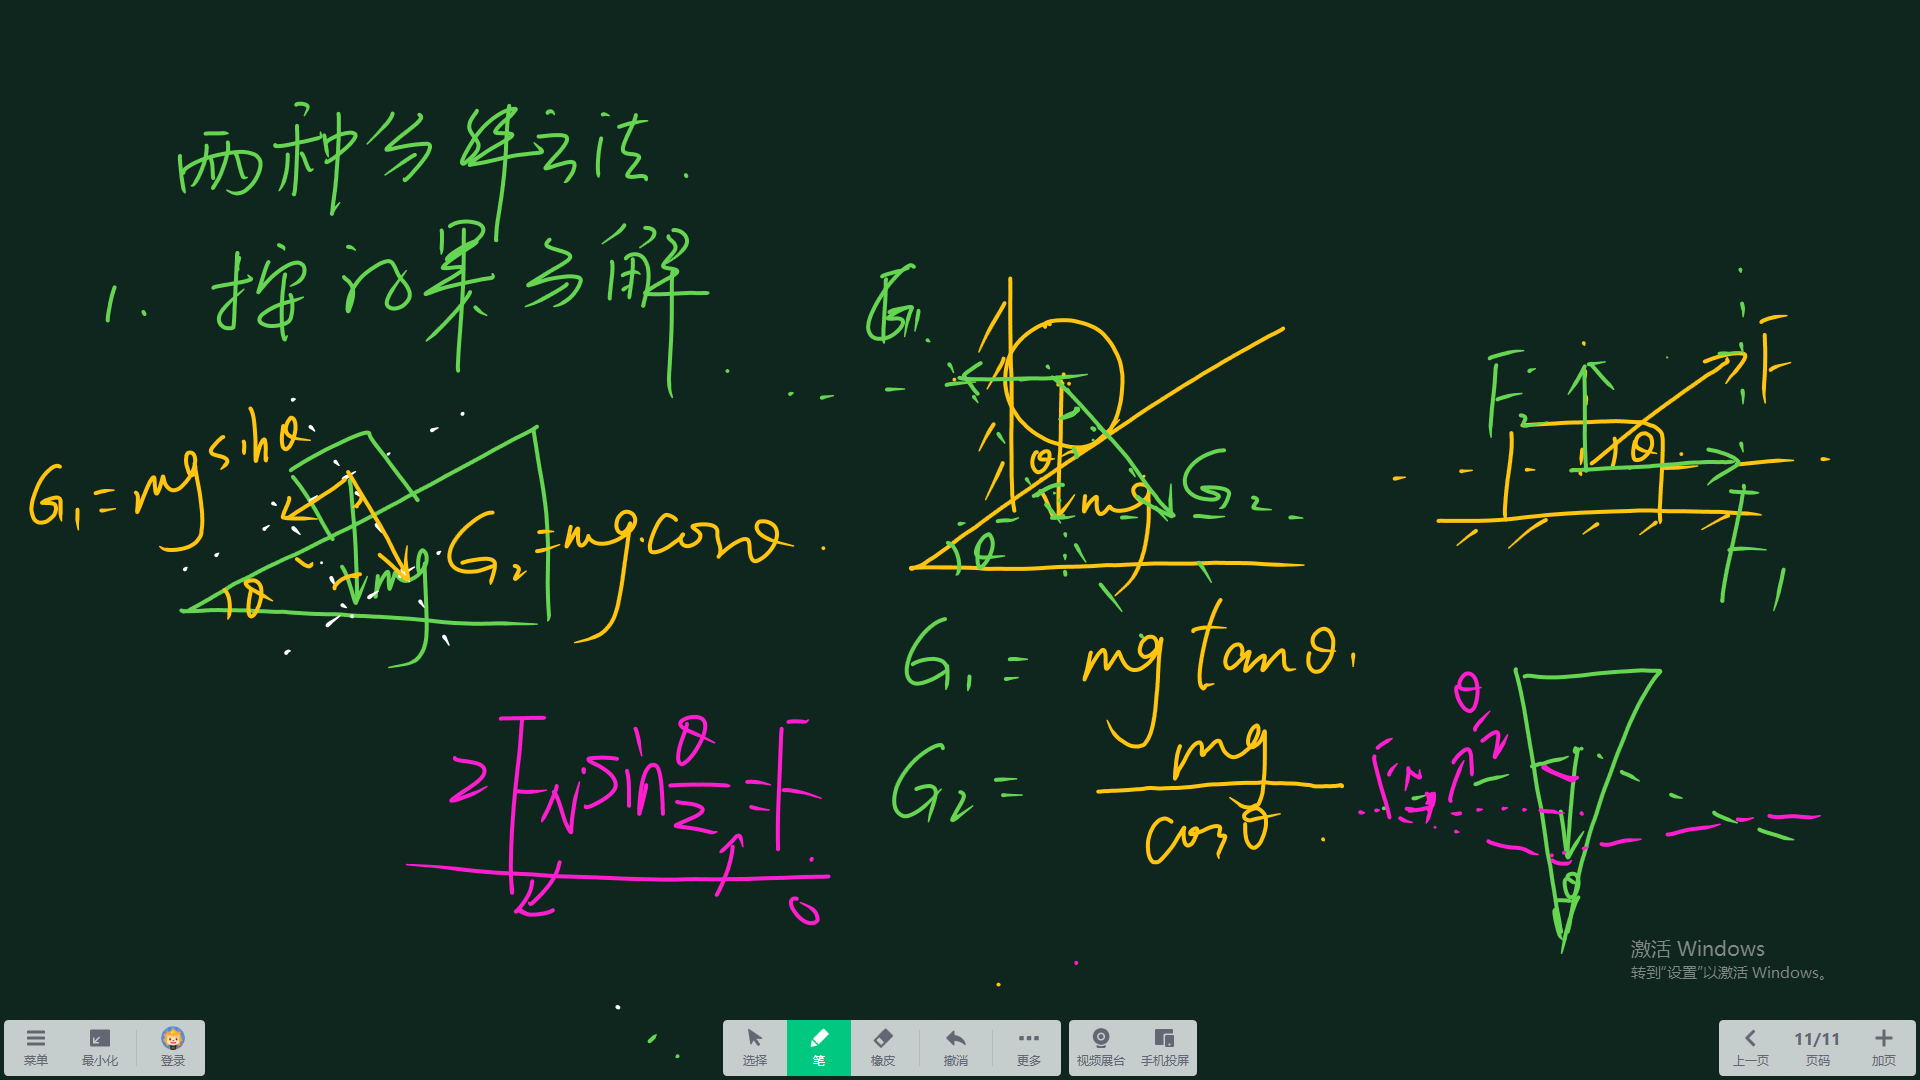 两种分解方法.
1. 按效果分解
G₁=mgsinθ
mg
G₂=mg.cosθ.
θ
G₁
θ
mg
G₂
θ
G₁ = mgtanθ.
G₂ = mg/cosθ.
F
F₂
θ
F₁
2F_N sin θ/2 = F
θ
2
F_N
θ
激活 Windows
转到“设置”以激活 Windows。
菜单
最小化
登录
选择
笔
橡皮
撤消
更多
视频展台
手机投屏
上一页
11/11
页码
加页